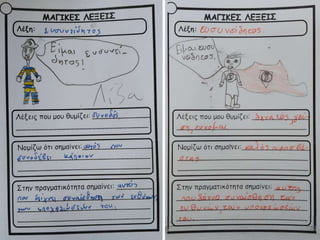 ΜΑΓΙΚΕΣ ΛΕΞΕΙΣ
Λέξη: Ευσυνείδητος
Είμαι ευσυνεί
δητος!
Λίζα
Λέξεις που μου θυμίζει:
Νομίζω ότι σημαίνει: αυτός που
συνοδεύει κάποιον
Στην πραγματικότητα σημαίνει: αυτός
που έχει συναίσθηση των
των υποχρεώσεών του.
ΜΑΓΙΚΕΣ ΛΕΞΕΙΣ
Λέξη: Ευσυνείδητος
Είμαι ευσυ
νείδητος.
Λέξεις που μου θυμίζει:
Νομίζω ότι σημαίνει: καλός
Στην πραγματικότητα σημαίνει: αυτός
που έχει συναίσθηση των
ευθυνών, των υποχρεώσεών
του.